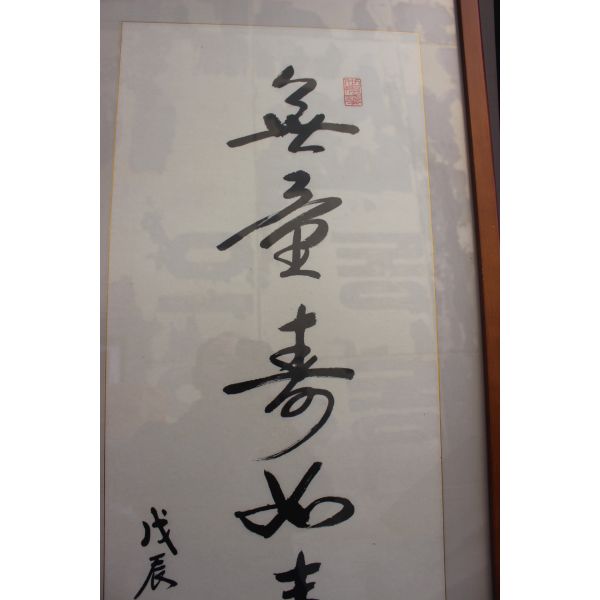 無量寿如
戊辰